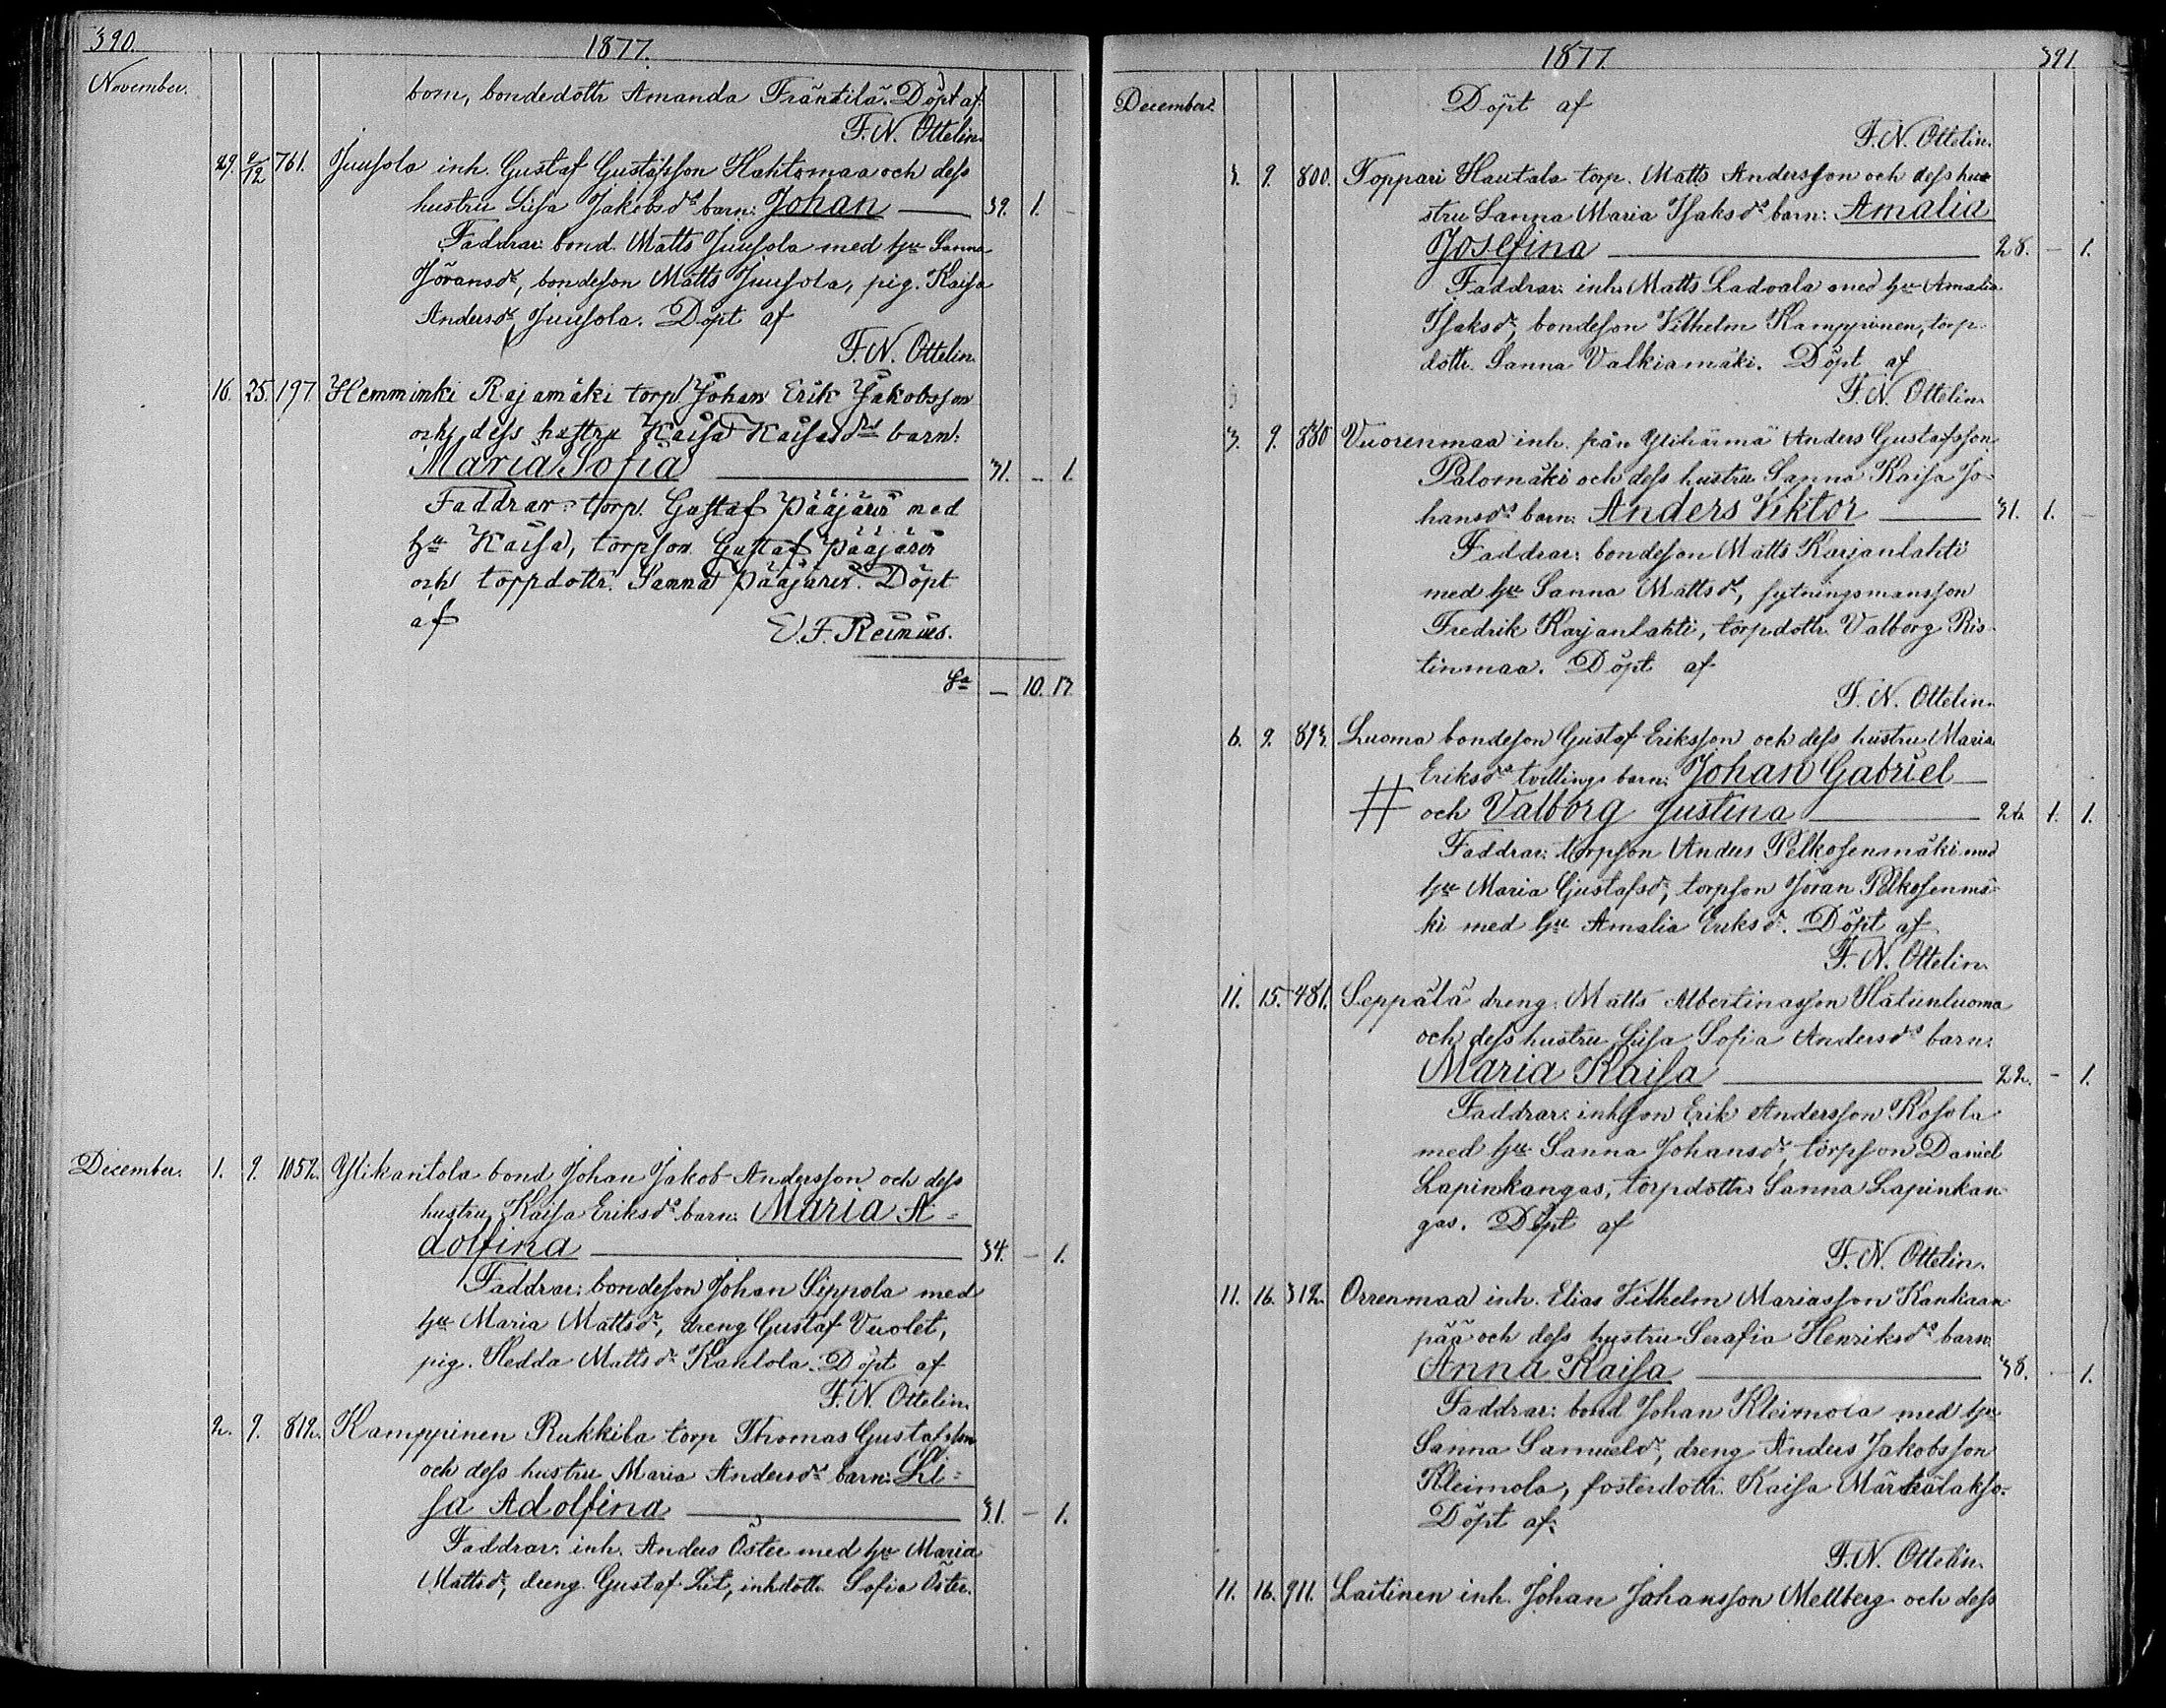 390.
1877.
November.
born, bondedottr Amanda Fräntilä. Döpt af
F. N. Ottelin.
29. 2/12 761. Juusola inh. Gustaf Gustafsson Hahtomaa och dess
hustru Lisa Jakobsdr barn: Johan — 39. 1. –
Faddrar: bond. Matts Juusola med hu Sanna
Göransdr, bondeson Matts Juusola, pig. Kaisa
Andersdr Juusola. Döpt af
F. N. Ottelin.
16. 25. 197. Hemminki Rajamäki torp. Johan Erik Jakobsson
och dess hustru Kaisa Kaisasdr barn:
Maria Sofia — 31. – 1.
Faddrar: torp. Gustaf Pääjärvi med
hu Kaisa, torpson Gustaf Pääjärvi
och torppdottr. Sanna Pääjärvi. Döpt
af E. F. Reinius.
Sa — 10. 17.
December. 1. 9. 1052. Ylikantola bond Johan Jakob Andersson och dess
hustru Kaisa Eriksdr barn: Maria A=
dolfina — 34. – 1.
Faddrar: bondeson Johan Sippola med
hu Maria Mattsdr, dreng Gustaf Vuolet,
pig. Hedda Mattsdr Kantola. Döpt af
F. N. Ottelin.
2. 9. 812. Kamppinen Rukkila torp Thomas Gustafsson
och dess hustru Maria Andersdr barn: Li=
sa Adolfina — 31. – 1.
Faddrar: inh. Anders Öster med hu Maria
Mattsdr, dreng Gustaf Lit, inhdottr Sofia Öster.
1877.
391
December.
Döpt af
F. N. Ottelin.
3. 9. 800. Toppari Hautala torp. Matts Andersson och dess hu
stru Sanna Maria Isaksdr barn: Amalia
Josefina — 28. – 1.
Faddrar: inh. Matts Ladvala med hu Amalia
Isaksdr, bondeson Vilhelm Kamppinen, torp
dottr. Sanna Valkiamäki. Döpt af
F. N. Ottelin.
3. 9. 830 Vuorenmaa inh. från Ylihärmä Anders Gustafsson
Palomäki och dess hustru Sanna Kaisa Jo-
hansdr barn: Anders Viktor — 31. 1. –
Faddrar: bondeson Matts Karjanlahti
med hu Sanna Mattsdr, sytningsmansson
Fredrik Karjanlahti, torpdottr Valborg Ris-
tinmaa. Döpt af
F. N. Ottelin.
6. 9. 893. Luoma bondeson Gustaf Eriksson och dess hustru Maria
Eriksdr tvillings barn: Johan Gabriel —
# och Valborg Justina — 26. 1. 1.
Faddrar: torpson Anders Pelkosenmäki med
hu Maria Gustafsdr, torpson Jöran Pelkosenmä-
ki med hu Amalia Eriksdr. Döpt af
F. N. Ottelin.
11. 15. 481. Seppälä dreng. Matts Albertinasson Hatunluoma
och dess hustru Lisa Sofia Andersdr barn:
Maria Kaisa — 22. – 1.
Faddrar: inhson Erik Andersson Kosola
med hu Sanna Johansdr, torpson Daniel
Lapinkangas, torpdottr Sanna Lapinkan-
gas. Döpt af
F. N. Ottelin.
11. 16. 312. Orrenmaa inh. Elias Vilhelm Mariasson Kankaan
pää och dess hustru Serafia Henriksdr barn:
Anna Kaisa — 38. – 1.
Faddrar: bond Johan Kleimola med hu
Sanna Samuelsdr, dreng Anders Jakobsson
Kleimola, fosterdottr. Kaisa Märkälakso.
Döpt af
F. N. Ottelin.
11. 16. 911. Laitinen inh. Johan Johansson Mellberg och dess